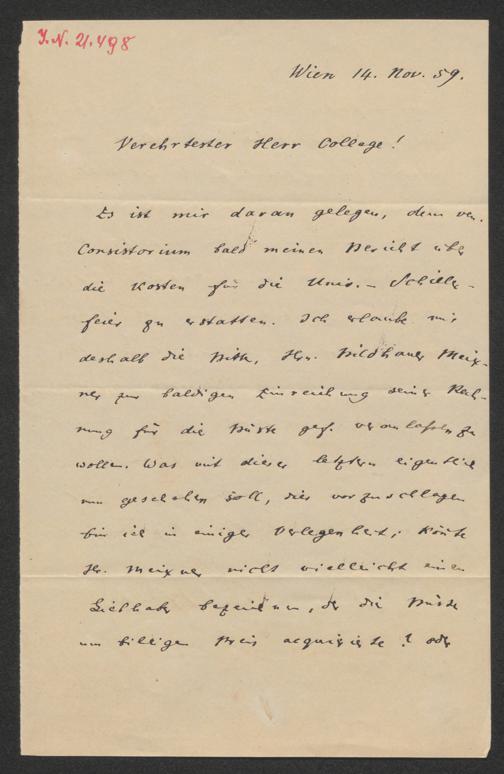 I.N. 21.498
Wien 14. Nov. 59.
Verehrtester Herr College!
Es ist mir daran gelegen, dem ven.
Consistorium bald meinen Bericht über
die Kosten für die Univ.- Schiller-
feier zu erstatten. Ich erlaube mir
deshalb die Bitte, Hrn. Bildhauer Meix-
ner zur baldigen Einreichung seiner Rech-
nung für die Büste gef. veranlassen zu
wollen. Was mit dieser letztern eigentlich
nun geschehen soll, dies vorzuschlagen
bin ich in einiger Verlegenheit; könte
Hr. Meixner nicht vielleicht einen
Liebhaber bezeichnen, der die Büste
um billigen Preis acquirirte? oder